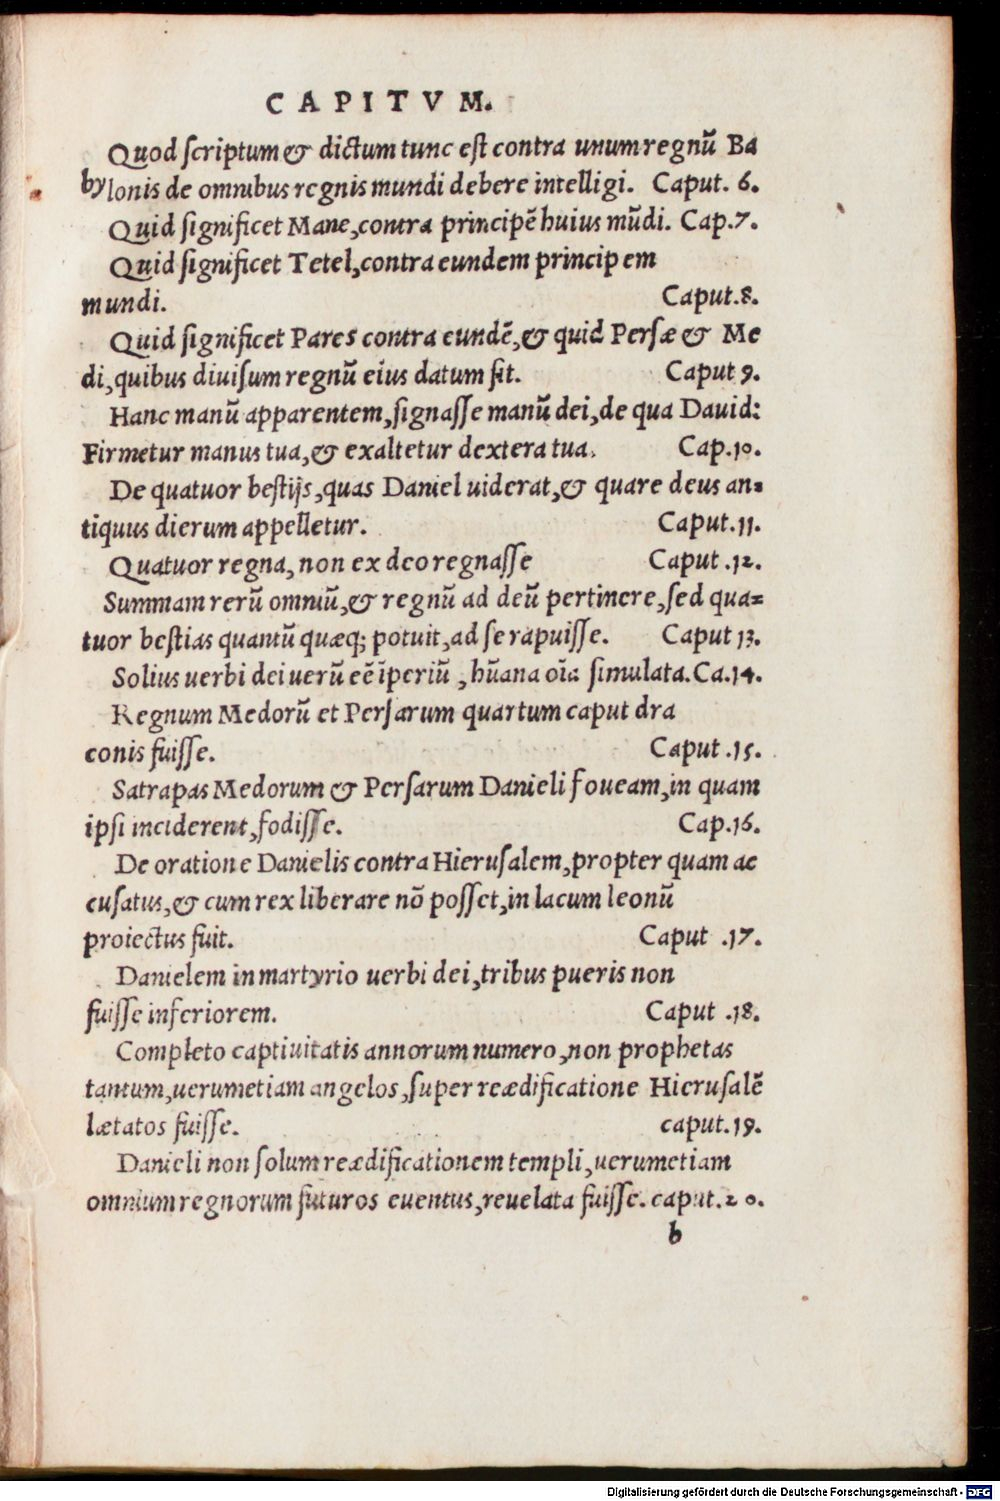 CAPITVM.
Quod scriptum & dictum tunc est contra unum regnũ Ba
bylonis de omnibus regnis mundi debere intelligi. Caput. 6.
Quid significet Mane, contra principẽ huius mũdi. Cap.7.
Quid significet Tetel, contra eundem principem
mundi. Caput.8.
Quid significet Pares contra eundẽ, & quid Persæ & Me
di, quibus diuisum regnũ eius datum sit. Caput 9.
Hanc manũ apparentem, signasse manũ dei, de qua Dauid:
Firmetur manus tua, & exaltetur dextera tua. Cap.10.
De quatuor bestijs, quas Daniel uiderat, & quare deus an=
tiquus dierum appelletur. Caput.11.
Quatuor regna, non ex deo regnasse Caput .12.
Summam rerũ omniũ, & regnũ ad deũ pertinere, sed qua=
tuor bestias quantũ quæq; potuit, ad se rapuisse. Caput 13.
Solius uerbi dei uerũ eẽ ĩperiũ, hũana oĩa simulata. Ca.14.
Regnum Medorũ et Persarum quartum caput dra
conis fuisse. Caput .15.
Satrapas Medorum & Persarum Danieli foueam, in quam
ipsi inciderent, fodisse. Cap.16.
De oratione Danielis contra Hierusalem, propter quam ac
cusatus, & cum rex liberare nõ posset, in lacum leonũ
proiectus fuit. Caput .17.
Danielem in martyrio uerbi dei, tribus pueris non
fuisse inferiorem. Caput .18.
Completo captiuitatis annorum numero, non prophetas
tantum, uerumetiam angelos, super reædificatione Hierusalẽ
lætatos fuisse. caput.19.
Danieli non solum reædificationem templi, uerumetiam
omnium regnorum futuros euentus, reuelata fuisse. caput.20.
b
Digitalisierung gefördert durch die Deutsche Forschungsgemeinschaft - DFG